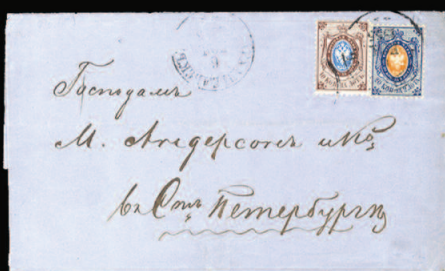 Господамъ
М. Андерсонъ и Ко,
въ Стъ Петербургъ